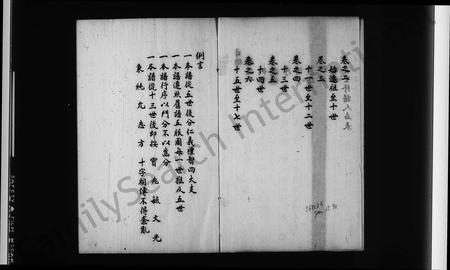 卷之二
始遷祖至十世
卷之三
十一世至十二世
卷之四
十三世
卷之五
十四世
卷之六
十五世至十七世
例言
一本譜從五世後分仁義禮智四大支
一本譜遵照舊譜五服圖每一世推及五世
一本譜行序以門分不以齒分
一本譜從十三世後即按 寶 兆 毓 文 光
東 純 允 志 方 十字相傳不得紊亂
FamilySearch International